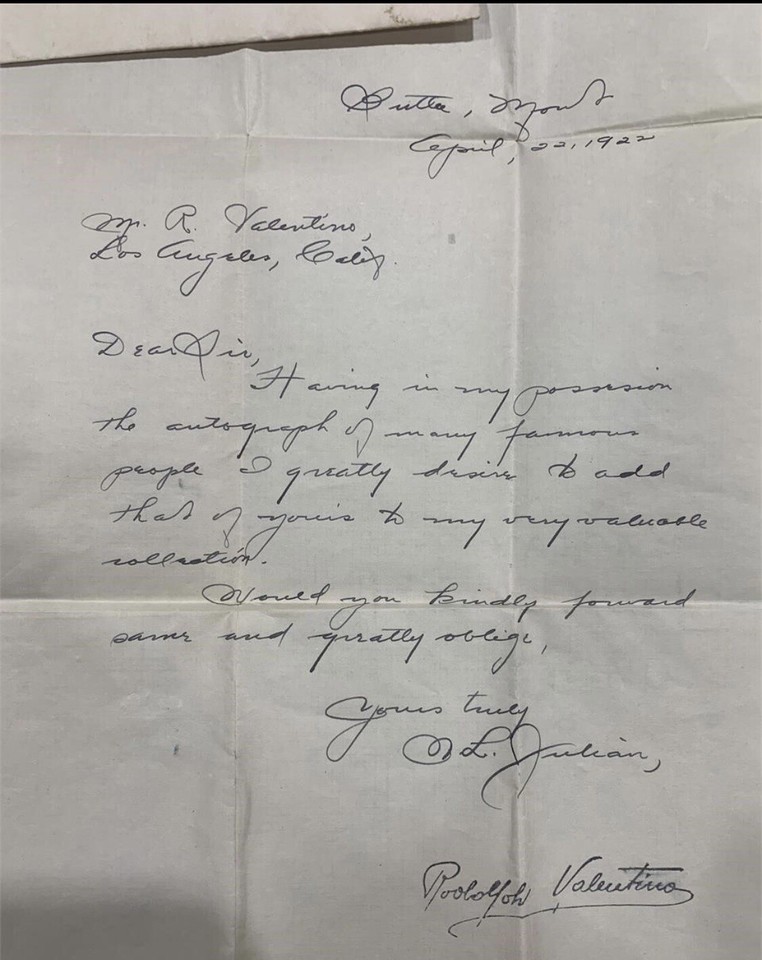 Butte, Mont
April, 22, 1922
Mr. R. Valentino,
Los Angeles, Calif.
Dear Sir,
Having in my possesion
the autograph of many famous
people I greatly desire to add
that of yours to my very valuable
collection.
Would you kindly forward
same and greatly oblige,
Yours truly
L. Julian,
Rodolph Valentino